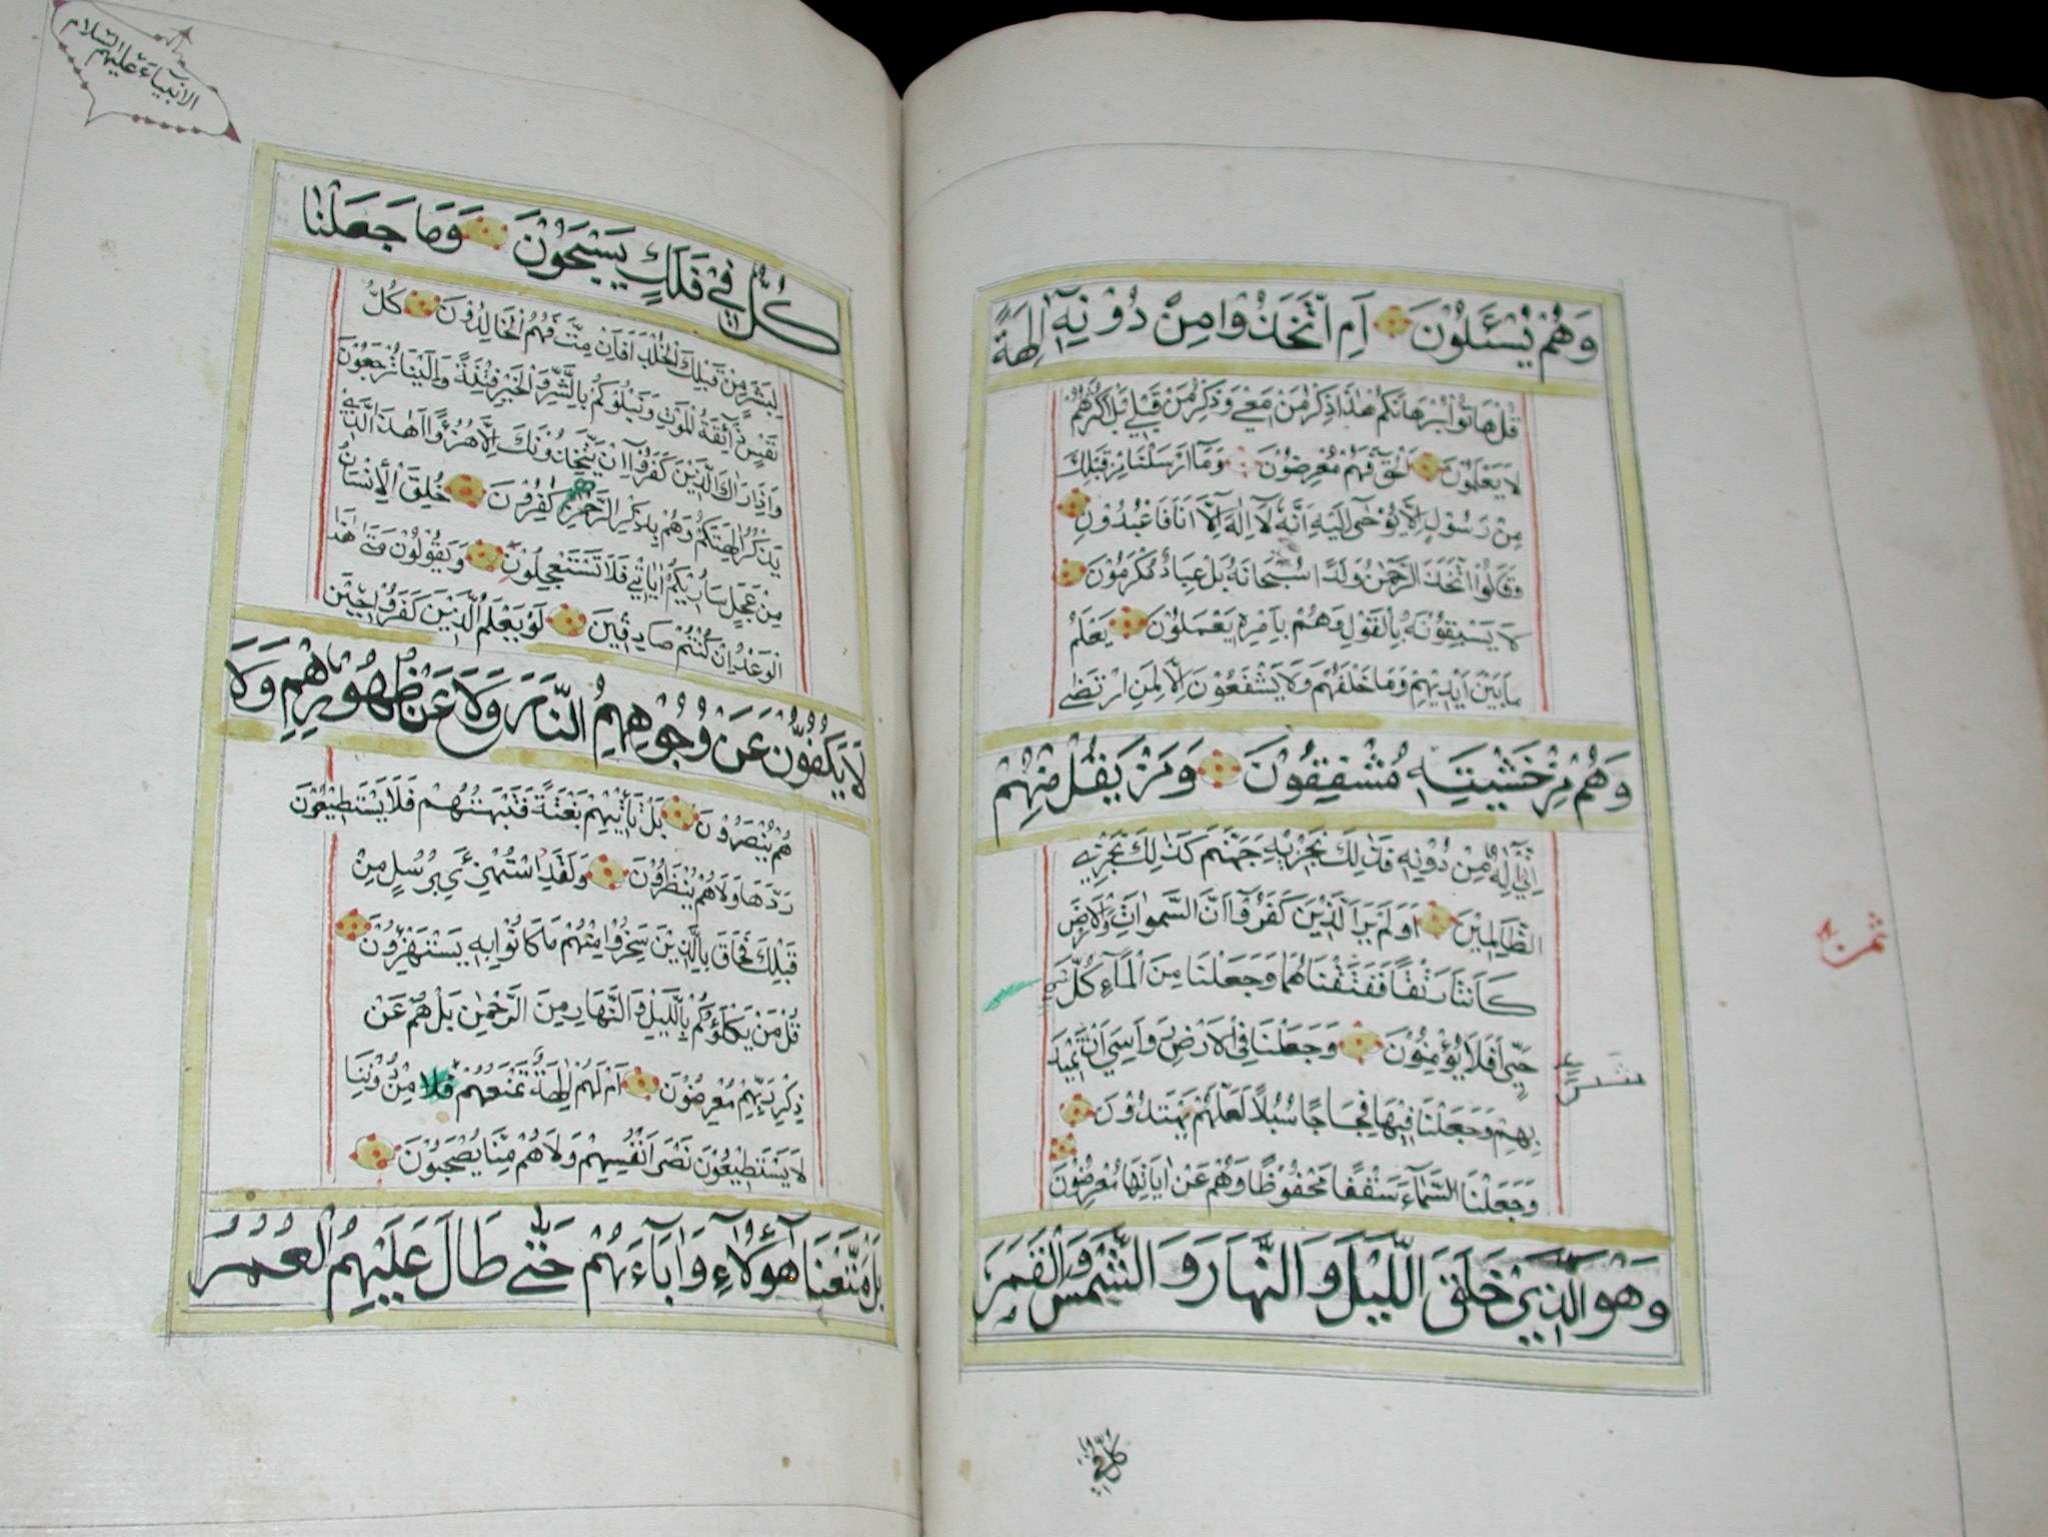 وَهُمْ يُسْئَلُوْنَ اَمِ اتَّخَذُوْا مِنْ دُوْنِهٖٓ اٰلِهَةً
قُلْ هَاتُوْا بُرْهَانَكُمْ هٰذَا ذِكْرُ مَنْ مَعِيَ وَذِكْرُ مَنْ قَبْلِيْ بَلْ اَكْثَرُهُمْ
لَا يَعْلَمُوْنَ الْحَقَّ فَهُمْ مُعْرِضُوْنَ وَمَآ اَرْسَلْنَا مِنْ قَبْلِكَ
مِنْ رَسُوْلٍ اِلَّا يُوْحٰى اِلَيْهِ اَنَّهٗ لَآ اِلٰهَ اِلَّآ اَنَا فَاعْبُدُوْنِ
وَقَالُوْا اتَّخَذَ الرَّحْمٰنُ وَلَدًا سُبْحَانَهٗ بَلْ عِبَادٌ مُكْرَمُوْنَ
لَا يَسْبِقُوْنَهٗ بِالْقَوْلِ وَهُمْ بِاَمْرِهٖ يَعْمَلُوْنَ يَعْلَمُ
مَا بَيْنَ اَيْدِيْهِمْ وَمَا خَلْفَهُمْ وَلَا يَشْفَعُوْنَ اِلَّا لِمَنِ ارْتَضٰى
وَهُمْ مِنْ خَشْيَتِهٖ مُشْفِقُوْنَ وَمَنْ يَقُلْ مِنْهُمْ
اِنِّيْٓ اِلٰهٌ مِنْ دُوْنِهٖ فَذٰلِكَ نَجْزِيْهِ جَهَنَّمَ كَذٰلِكَ نَجْزِي
الظَّالِمِيْنَ اَوَلَمْ يَرَ الَّذِيْنَ كَفَرُوْٓا اَنَّ السَّمٰوَاتِ وَالْاَرْضَ
كَانَتَا رَتْقًا فَفَتَقْنَاهُمَا وَجَعَلْنَا مِنَ الْمَآءِ كُلَّ شَيْءٍ
حَيٍّ اَفَلَا يُؤْمِنُوْنَ وَجَعَلْنَا فِي الْاَرْضِ رَوَاسِيَ اَنْ تَمِيْدَ
بِهِمْ وَجَعَلْنَا فِيْهَا فِجَاجًا سُبُلًا لَعَلَّهُمْ يَهْتَدُوْنَ
وَجَعَلْنَا السَّمَآءَ سَقْفًا مَحْفُوْظًا وَهُمْ عَنْ اٰيَاتِهَا مُعْرِضُوْنَ
وَهُوَ الَّذِيْ خَلَقَ الَّيْلَ وَالنَّهَارَ وَالشَّمْسَ وَالْقَمَرَ
ثمن
كُلٌّ فِيْ
الانبيآء عليهم السلام
كُلٌّ فِيْ فَلَكٍ يَسْبَحُوْنَ وَمَا جَعَلْنَا
لِبَشَرٍ مِنْ قَبْلِكَ الْخُلْدَ اَفَاِنْ مِتَّ فَهُمُ الْخَالِدُوْنَ كُلُّ
نَفْسٍ ذَآئِقَةُ الْمَوْتِ وَنَبْلُوْكُمْ بِالشَّرِّ وَالْخَيْرِ فِتْنَةً وَاِلَيْنَا تُرْجَعُوْنَ
وَاِذَا رَاٰكَ الَّذِيْنَ كَفَرُوْٓا اِنْ يَتَّخِذُوْنَكَ اِلَّا هُزُؤًا اَهٰذَا الَّذِيْ
يَذْكُرُ اٰلِهَتَكُمْ وَهُمْ بِذِكْرِ الرَّحْمٰنِ هُمْ كٰفِرُوْنَ خُلِقَ الْاِنْسَانُ
مِنْ عَجَلٍ سَاُرِيْكُمْ اٰيَاتِيْ فَلَا تَسْتَعْجِلُوْنِ وَيَقُوْلُوْنَ مَتٰى هٰذَا
الْوَعْدُ اِنْ كُنْتُمْ صَادِقِيْنَ لَوْ يَعْلَمُ الَّذِيْنَ كَفَرُوْا حِيْنَ
لَا يَكُفُّوْنَ عَنْ وُجُوْهِهِمُ النَّارَ وَلَا عَنْ ظُهُوْرِهِمْ وَلَا
هُمْ يُنْصَرُوْنَ بَلْ تَأْتِيْهِمْ بَغْتَةً فَتَبْهَتُهُمْ فَلَا يَسْتَطِيْعُوْنَ
رَدَّهَا وَلَا هُمْ يُنْظَرُوْنَ وَلَقَدِ اسْتُهْزِئَ بِرُسُلٍ مِنْ
قَبْلِكَ فَحَاقَ بِالَّذِيْنَ سَخِرُوْا مِنْهُمْ مَا كَانُوْا بِهٖ يَسْتَهْزِؤُنَ
قُلْ مَنْ يَكْلَؤُكُمْ بِالَّيْلِ وَالنَّهَارِ مِنَ الرَّحْمٰنِ بَلْ هُمْ عَنْ
ذِكْرِ رَبِّهِمْ مُعْرِضُوْنَ اَمْ لَهُمْ اٰلِهَةٌ تَمْنَعُهُمْ مِنْ دُوْنِنَا
لَا يَسْتَطِيْعُوْنَ نَصْرَ اَنْفُسِهِمْ وَلَا هُمْ مِنَّا يُصْحَبُوْنَ
بَلْ مَتَّعْنَا هٰٓؤُلَآءِ وَاٰبَآءَهُمْ حَتّٰى طَالَ عَلَيْهِمُ الْعُمُرُ